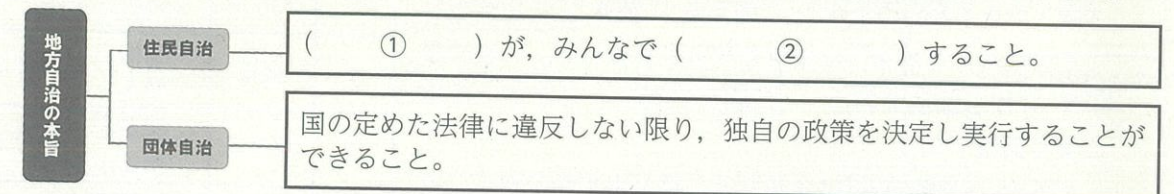 地方自治の本旨
住民自治
( ① )が，みんなで( ② )すること。
団体自治
国の定めた法律に違反しない限り，独自の政策を決定し実行することが
できること。